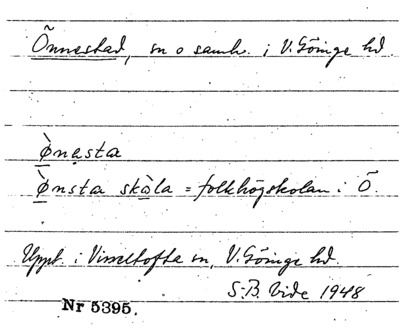 Önnestad, sn o samh. i V. Göinge hd.
Ø̀nesta
Ø̀nsta skåla = folkhögskolan i Ö.
Uppt. i Visseltofta sn, V. Göinge hd.
S.B. Vide 1948
Nr 5395.